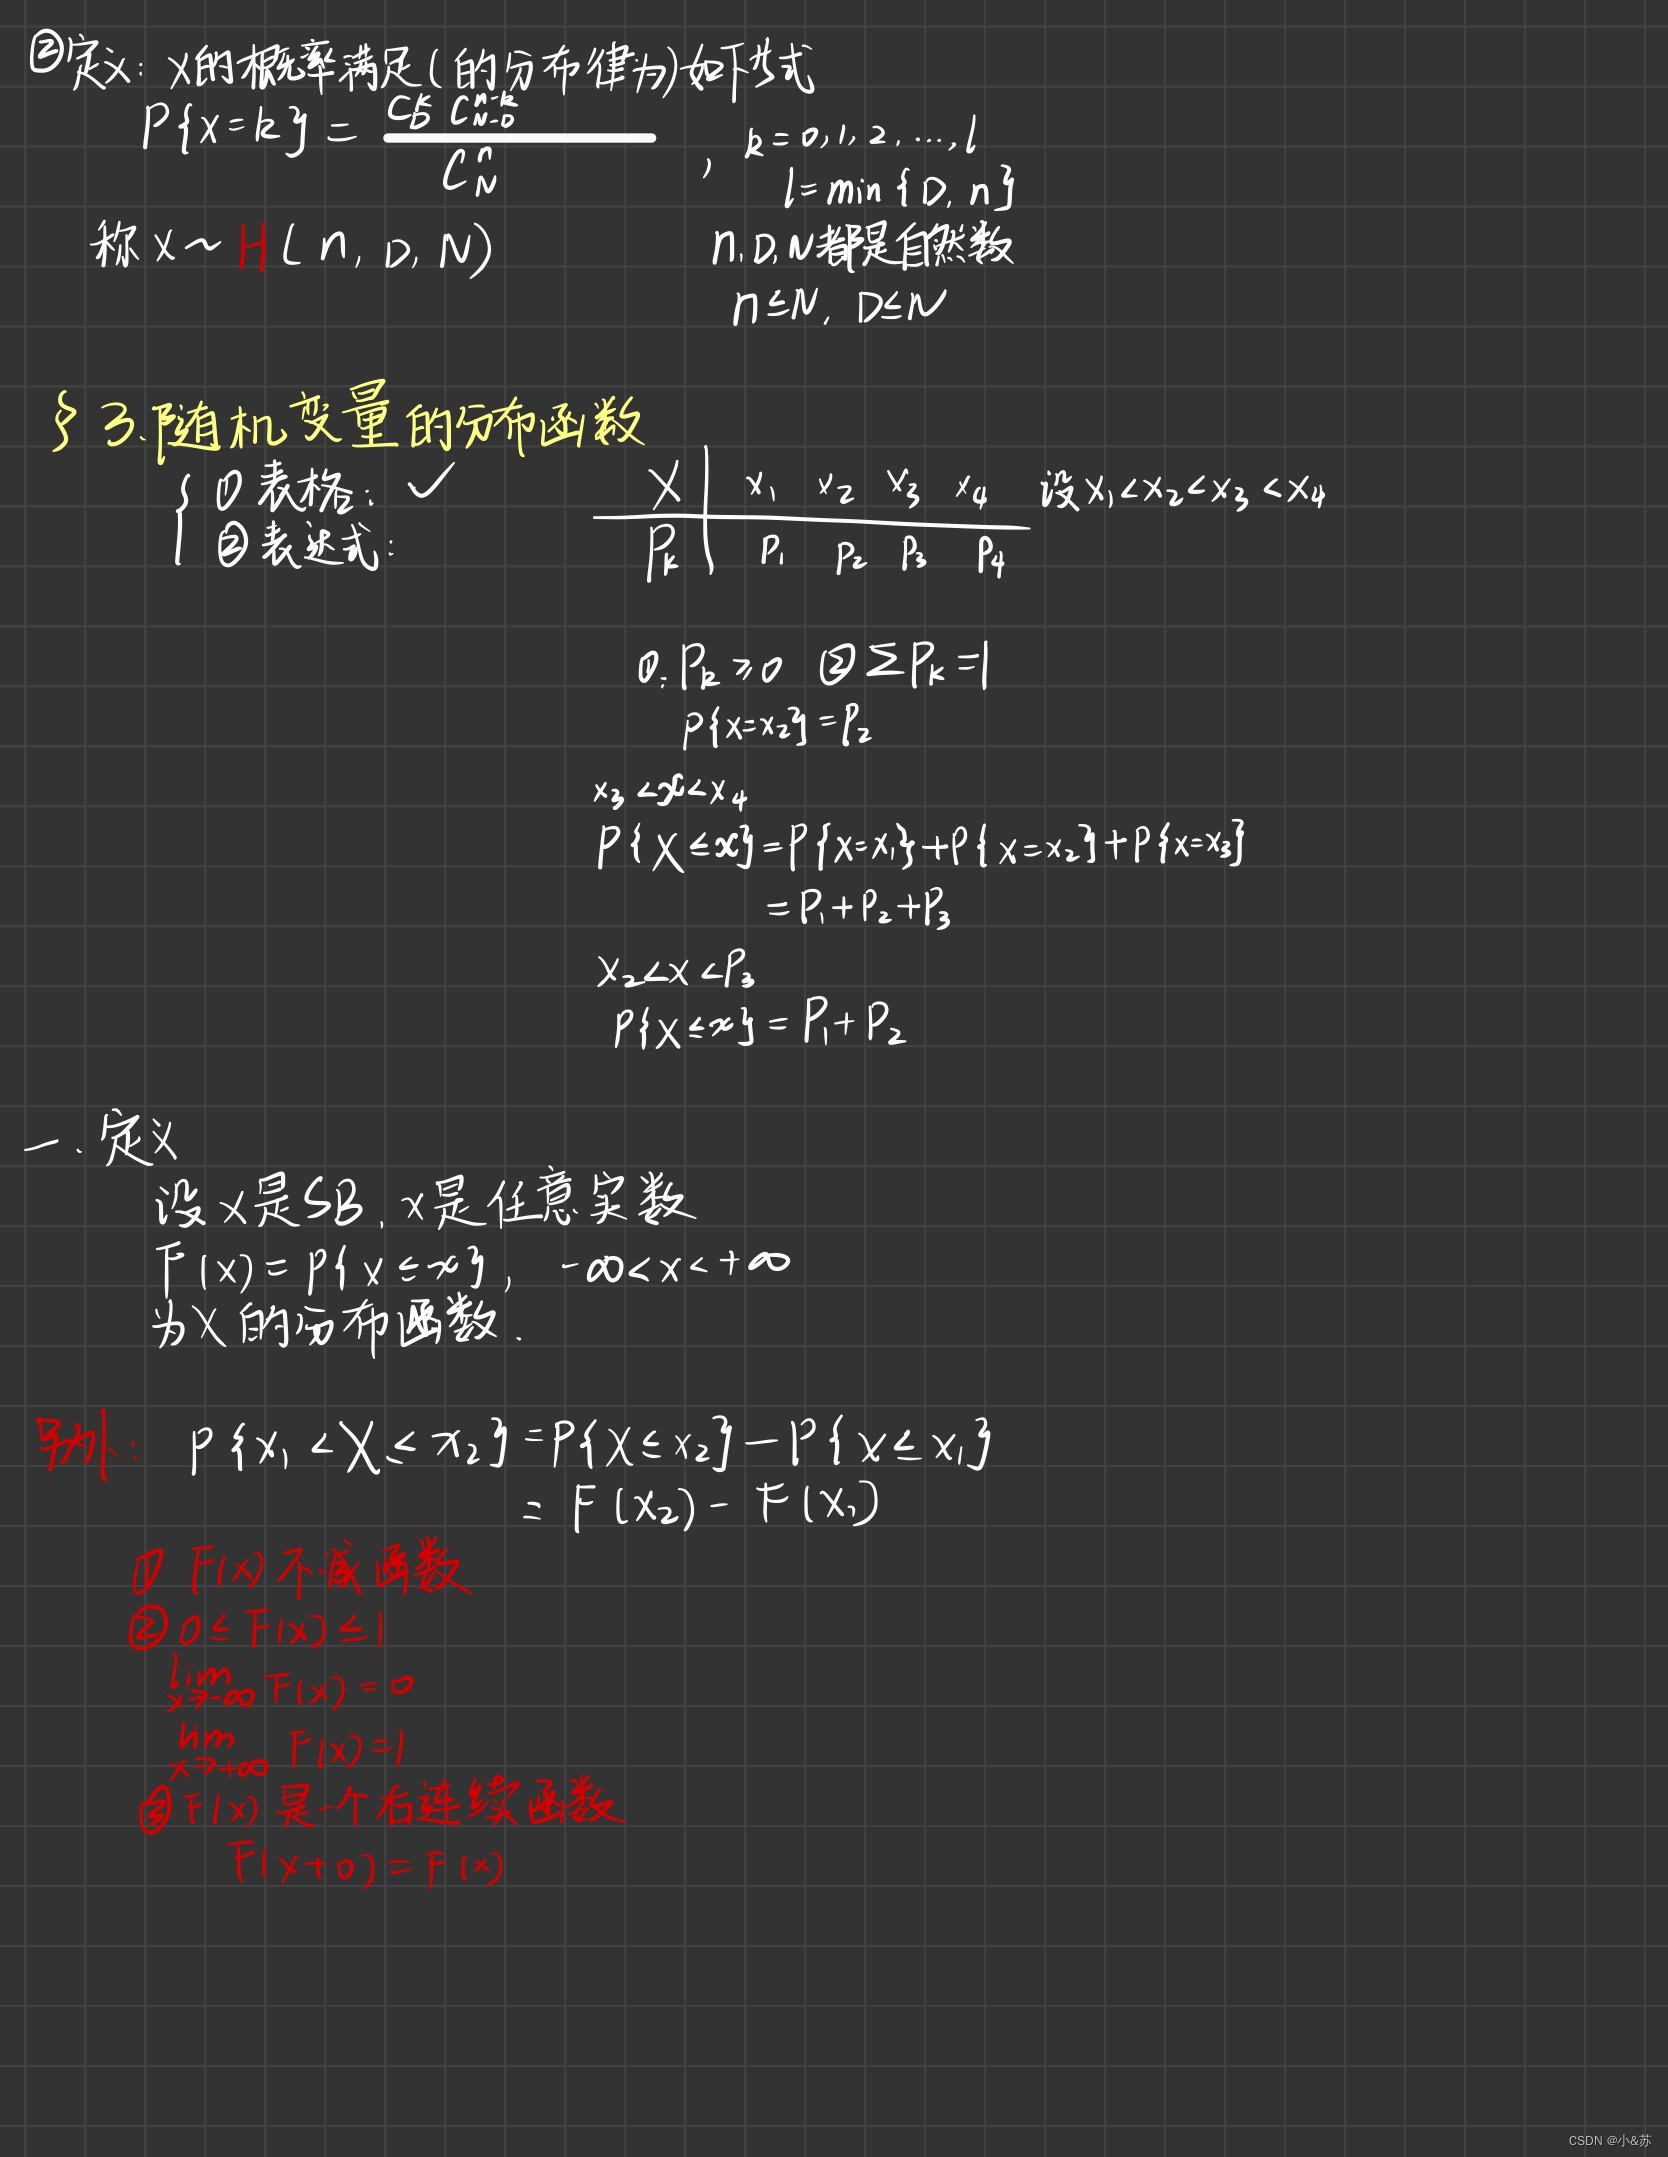 ②定义：X的概率满足(的分布律为)如下式
P{X=k} = C_D^k C_{N-D}^{n-k} / C_N^n , k=0,1,2,…,l
l=min{D,n}
称X~H(n,D,N)
n,D,N都是自然数
n≤N, D≤N
§3.随机变量的分布函数
①表格：✓
②表达式：
X | x₁ x₂ x₃ x₄ 设x₁<x₂<x₃<x₄
P_k | P₁ P₂ P₃ P₄
①.P_k≥0 ②ΣP_k=1
P{X=x₂}=P₂
x₃<x<x₄
P{X≤x}=P{X=x₁}+P{X=x₂}+P{X=x₃}
=P₁+P₂+P₃
x₂<x<P₃
P{X≤x}=P₁+P₂
一.定义
设X是SB,x是任意实数
F(x)=P{X≤x}, -∞<x<+∞
为X的分布函数.
另外：P{x₁<X≤x₂}=P{X≤x₂}-P{X≤x₁}
=F(x₂)-F(x₁)
①F(x)不减函数
②0≤F(x)≤1
lim x→-∞ F(x)=0
lim x→+∞ F(x)=1
③F(x)是一个右连续函数
F(x+0)=F(x)
CSDN @小&苏